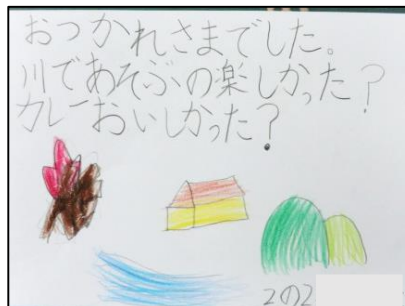 おつかれさまでした。
川であそぶの楽しかった?
カレーおいしかった?
2の2